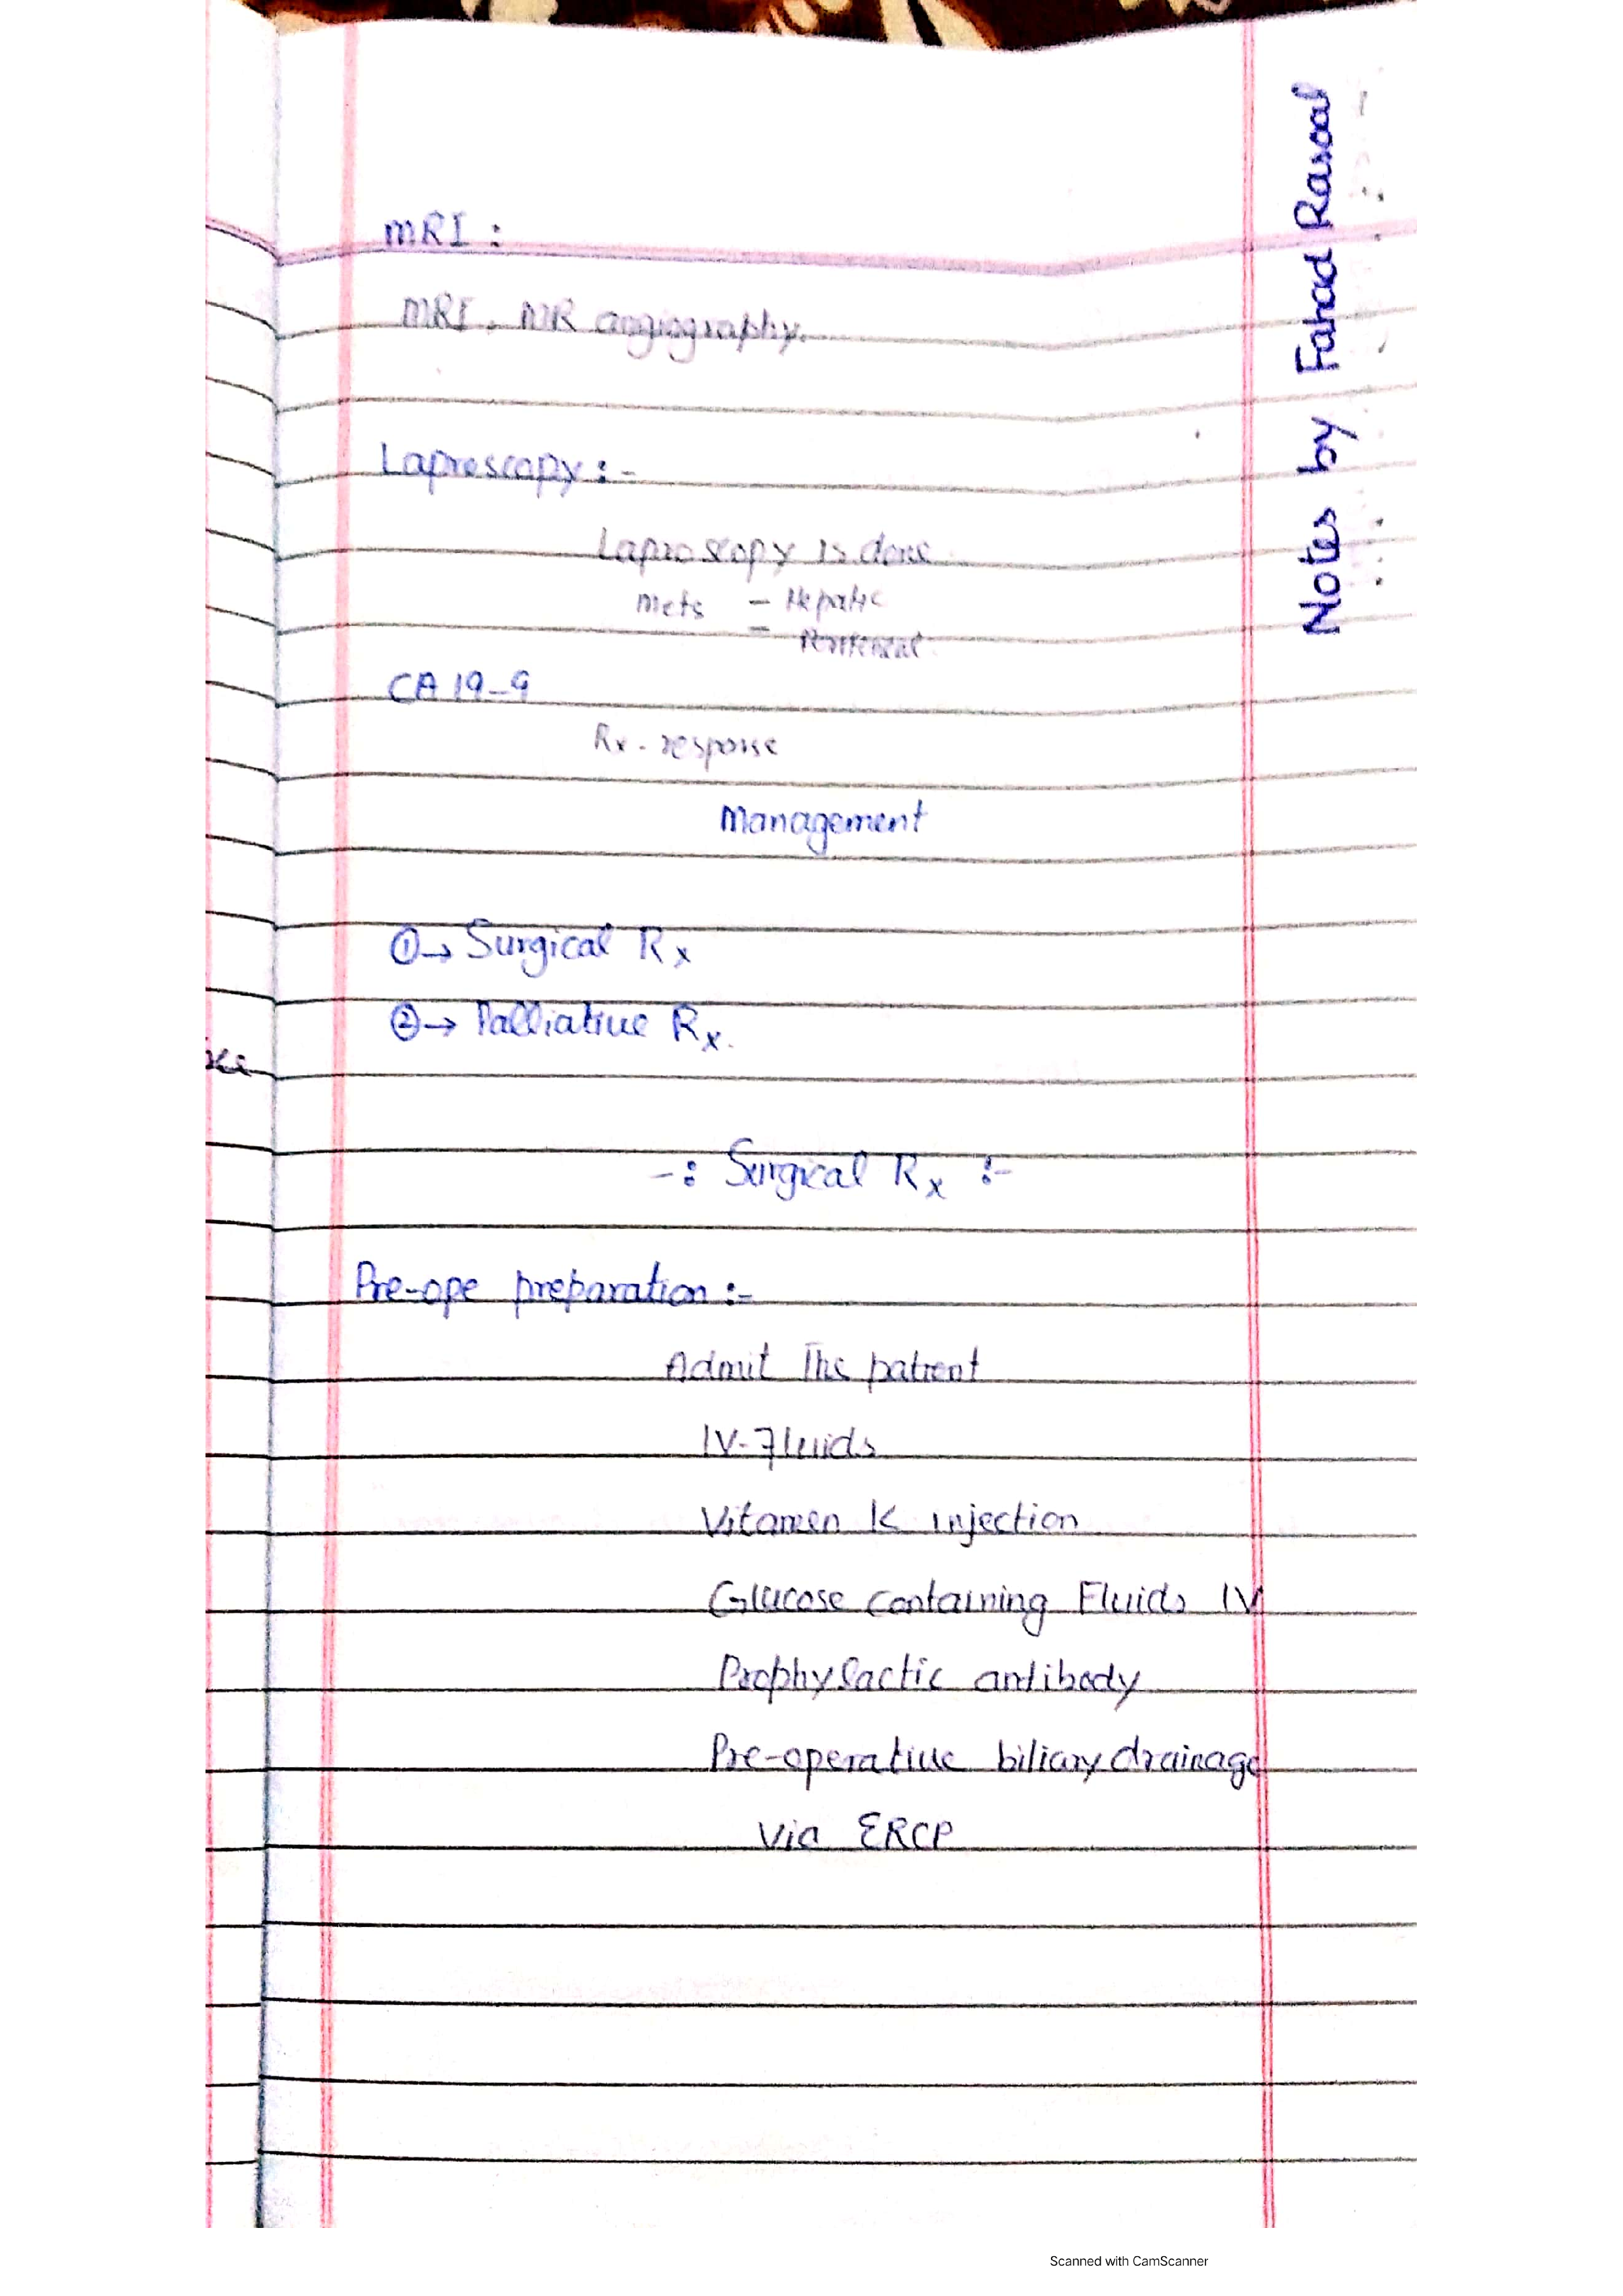 Notes by Fahad Rasool
MRI :
MRI, MR angiography.
Laprescopy :-
Laproscopy is done
Mets - Hepatic
- Peritoneal
CA 19-9
Rx - response
Management
① → Surgical Rx
② → Palliative Rx.
-: Surgical Rx :-
Pre-ope preparation :-
Admit The patient
IV-Fluids
Vitamen K injection
Glucose containing Fluids IV
Prophylactic antibody
Pre-operative biliary drainage
Via ERCP
Scanned with CamScanner